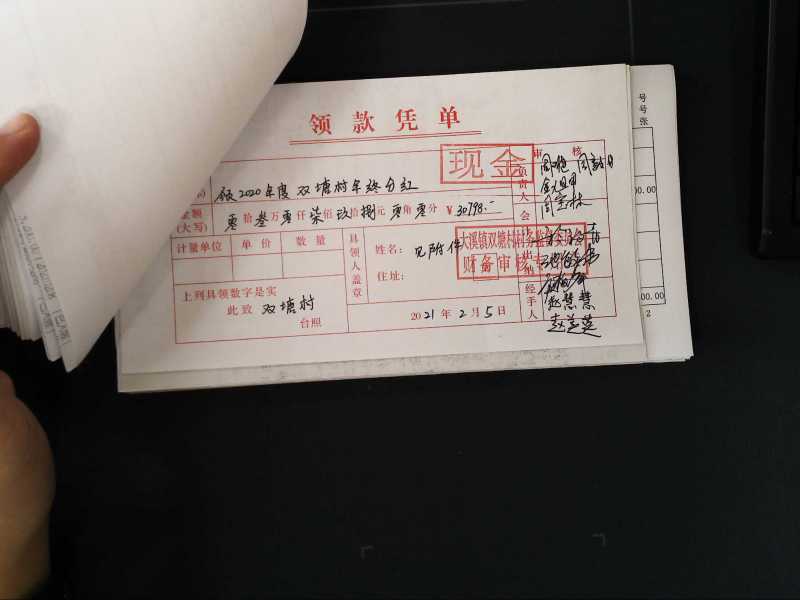 领款凭单
现金
审核
领2020年度双塘村年终分红
金额
(大写)
零拾叁万零仟柒佰玖拾捌元零角零分 ¥30798.-
计量单位 单价 数量
具领人盖章
姓名: 见附件
住址:
大溪镇双塘村村务监
财务审核专
上列具领数字是实
此致 双塘村
台照
2021年2月5日
负责人
会计
出纳
经手人
赵慧慧
号
号
张
00.00
00.00
2